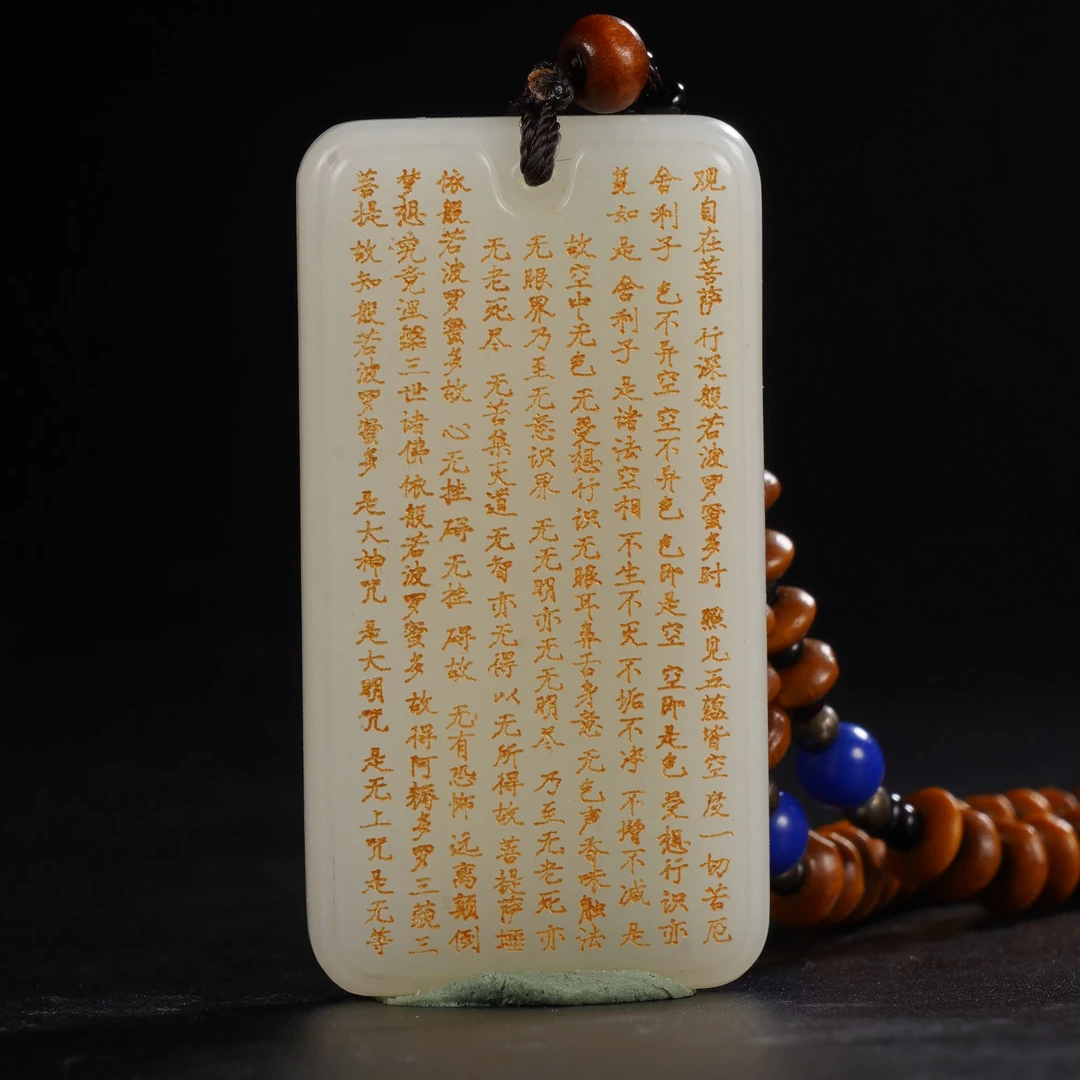 观自在菩萨 行深般若波罗蜜多时 照见五蕴皆空 度一切苦厄
舍利子 色不异空 空不异色 色即是空 空即是色 受想行识亦
复如是 舍利子 是诸法空相 不生不灭 不垢不净 不增不减 是
故空中无色 无受想行识 无眼耳鼻舌身意 无色声香味触法
无眼界乃至无意识界 无无明亦无无明尽 乃至无老死亦
无老死尽 无苦集灭道 无智亦无得 以无所得故 菩提萨埵
依般若波罗蜜多故 心无挂碍 无挂碍故 无有恐怖 远离颠倒
梦想究竟涅槃三世诸佛 依般若波罗蜜多 故得阿耨多罗三藐三
菩提 故知般若波罗蜜多 是大神咒 是大明咒 是无上咒 是无等